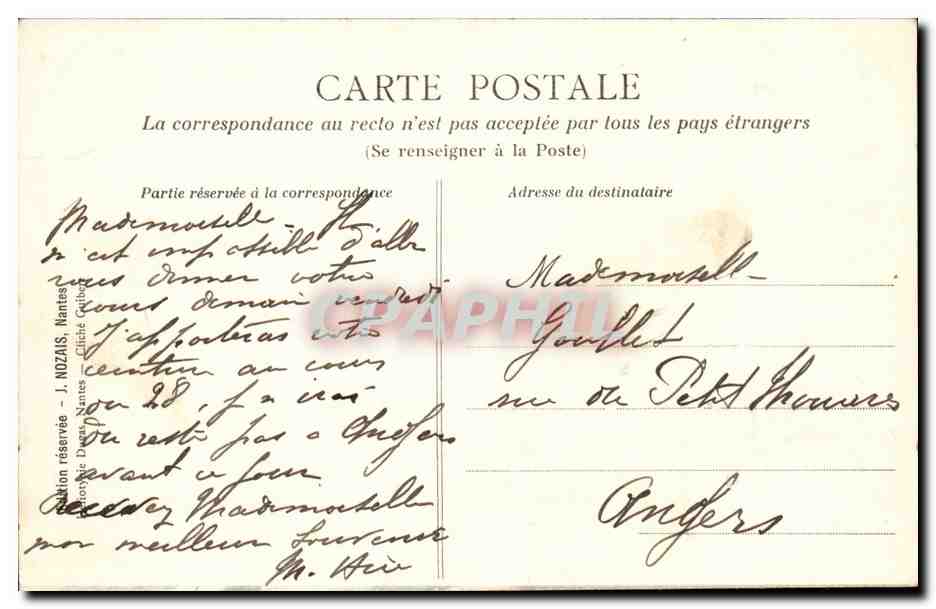 CARTE POSTALE
La correspondance au recto n'est pas acceptée par tous les pays étrangers
(Se renseigner à la Poste)
Partie réservée à la correspondance
Mademoiselle - Il
m'est impossible d'aller
vous donner votre
cours demain vendredi
J'apporterai votre
ceinture au cours
du 28, je n'irai
du reste pas a Angers
avant ce jour
Recevez Mademoiselle
mon meilleur souvenir
M.
Adresse du destinataire
Mademoiselle
Gouffet
rue du Petit Thouars
Angers
Edition réservée - J. NOZAIS, Nantes
Phototypie Dugas, Nantes - Cliché Guibert
CPAPHIL